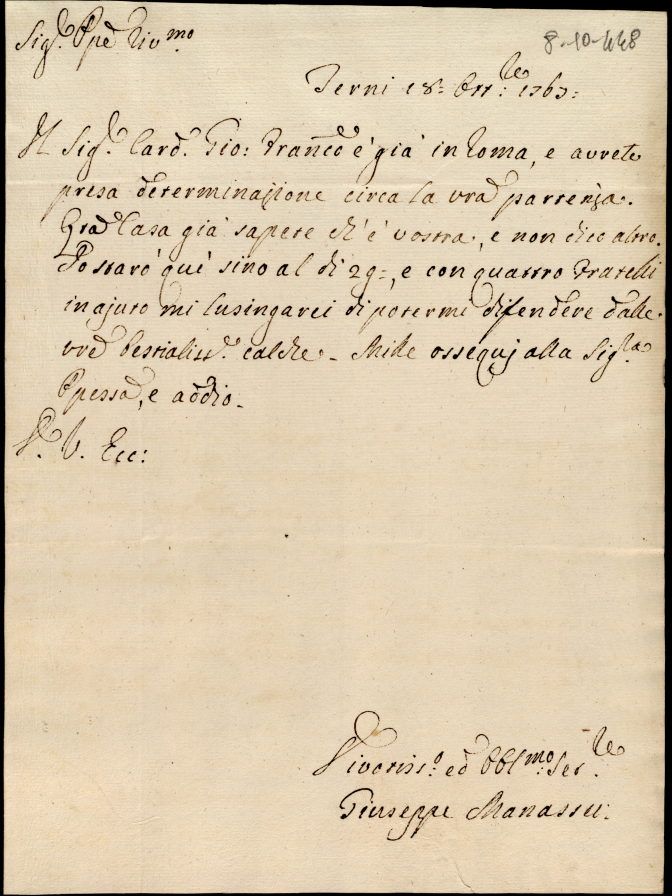 Sig.r Ppe Riv.mo
8-10-448
Terni 18: Ott:re 1763:
Il Sig.r Card. Gio: Franc.o è già in Roma, e avrete
presa determinazione circa la vrã partenza.
Casa già sapete ch'è vostra, e non dico altro.
Io starò quì sino al dì 29:, e con quattro Fratelli
in ajuto mi lusingarei di potermi difendere dalle
vrẽ bestialiss.e calche. Mille ossequj alla Sig.ra
Ppessa, e addio.
V. Ecc:
Divotiss.o ed Obb.mo Ser.re
Giuseppe Manassei.